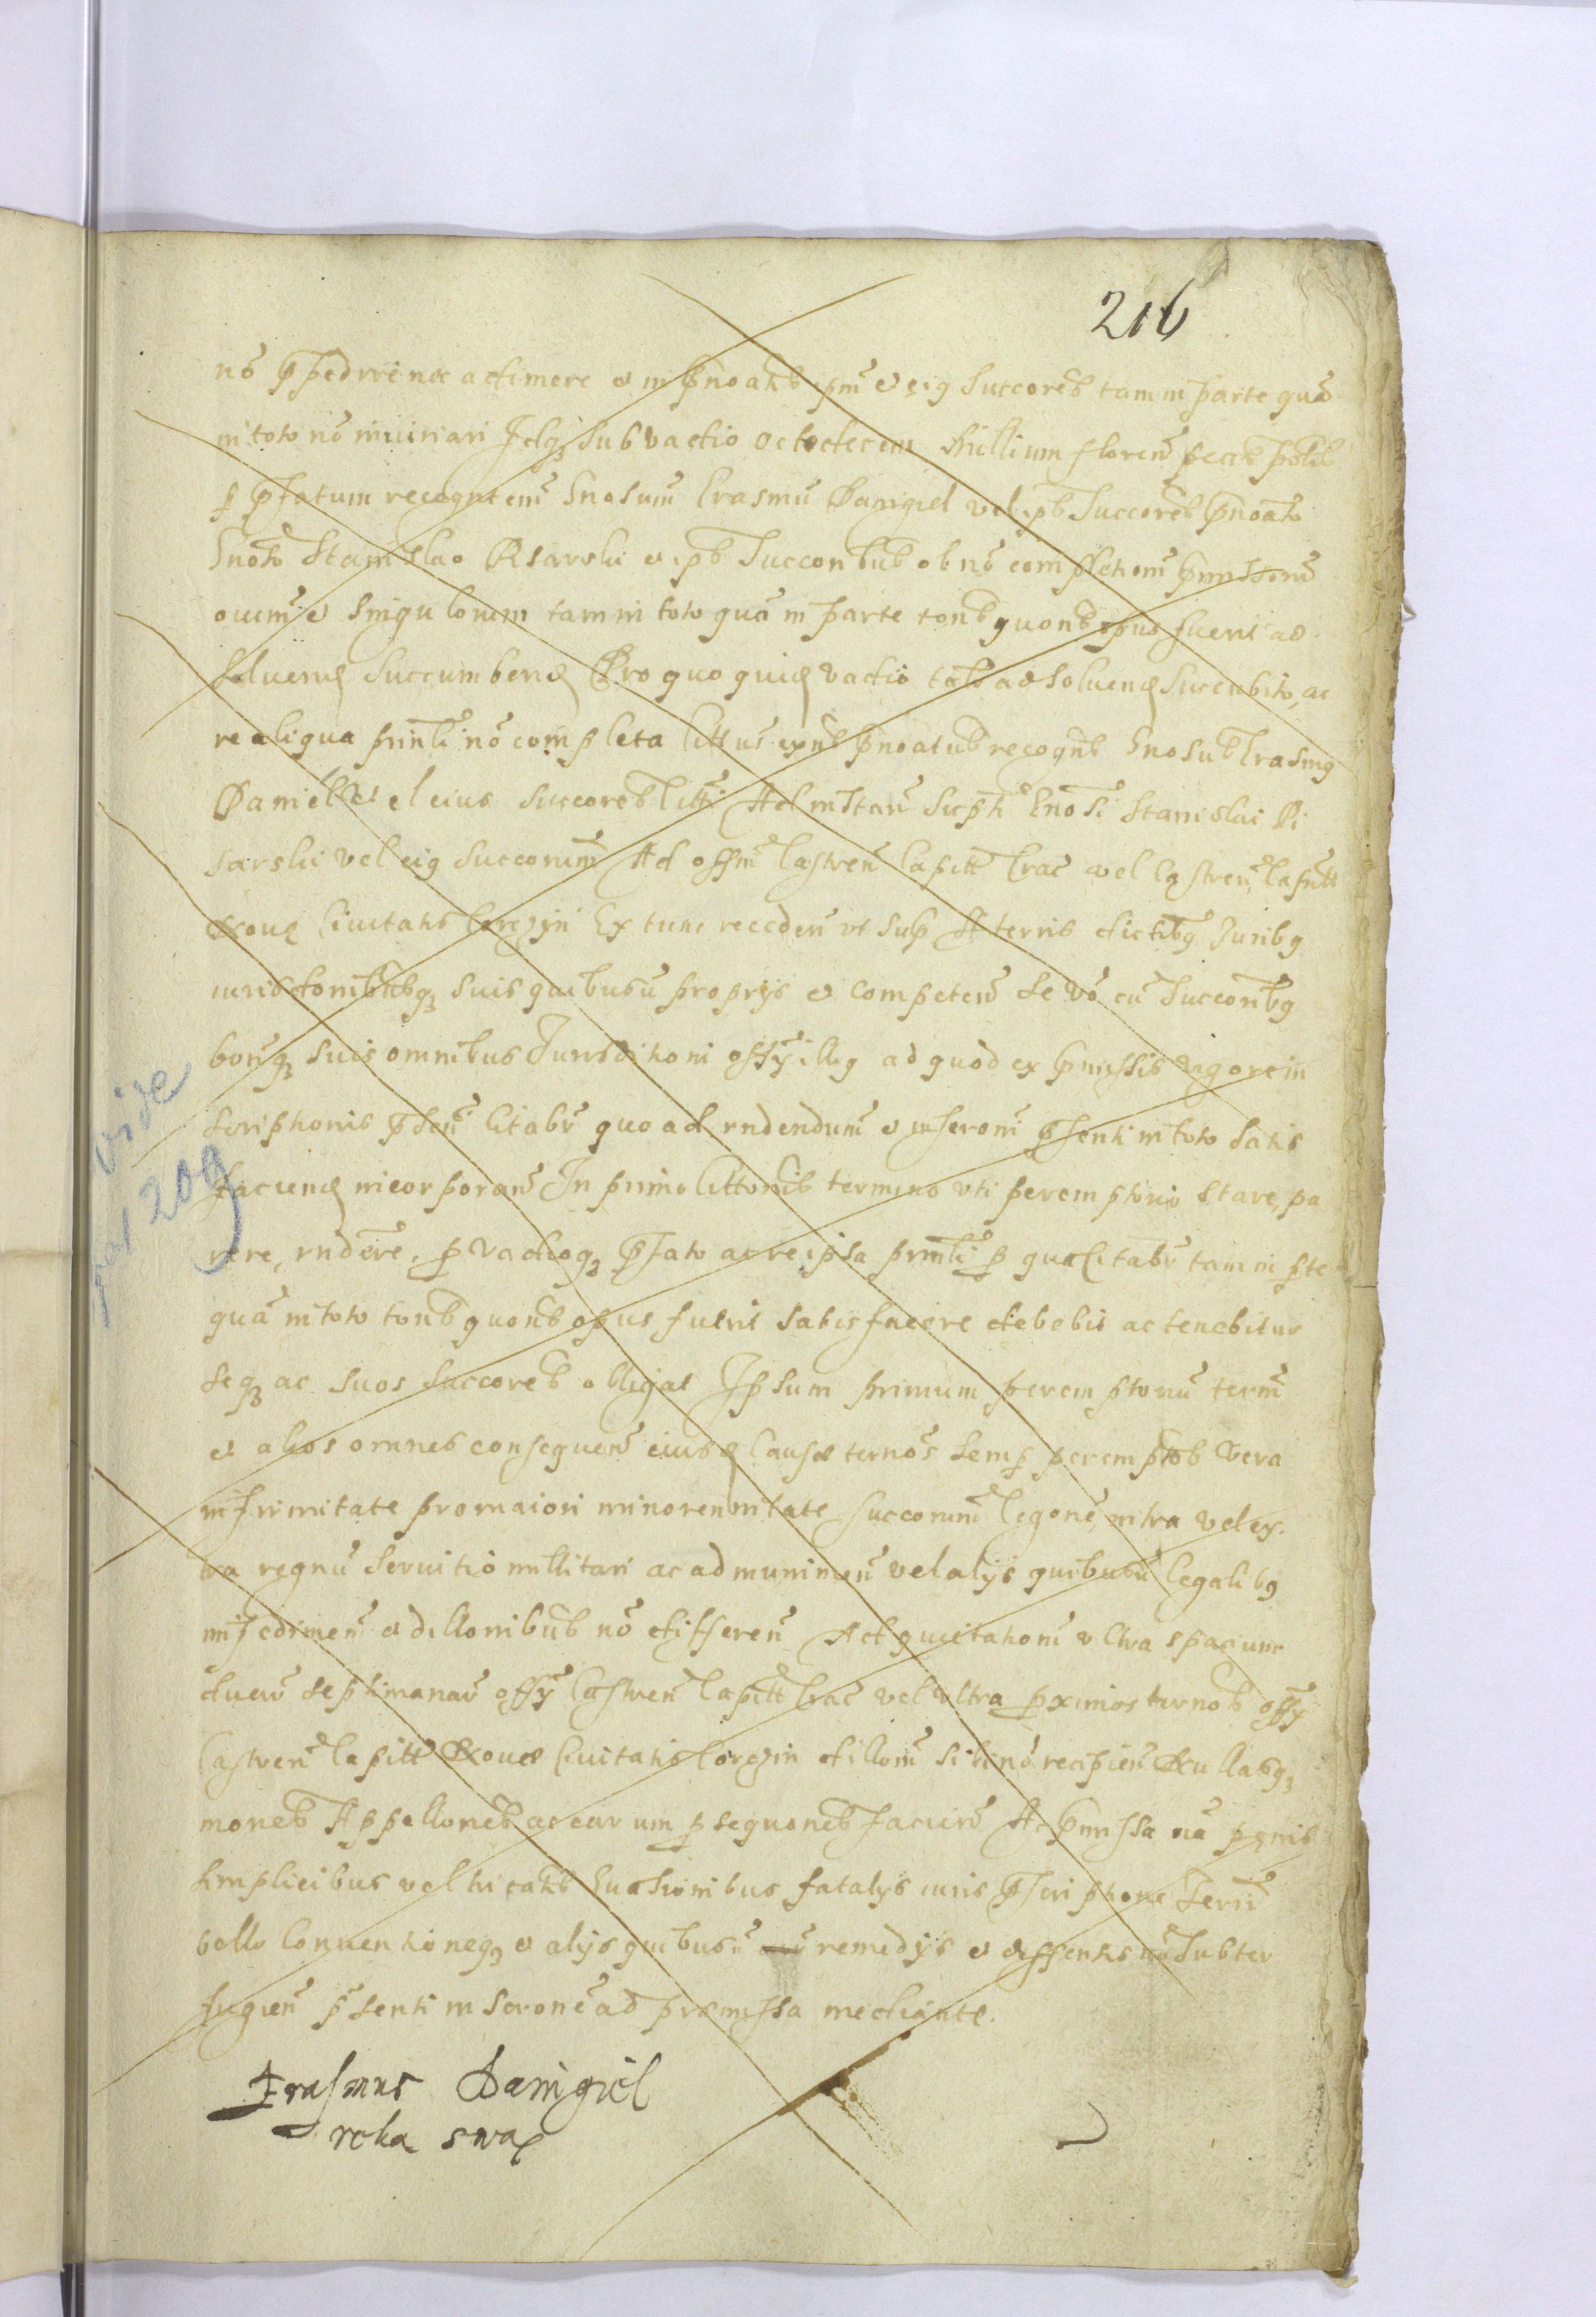 216
nō p̄pedire nec adimere et in p̄noatis pm̄ et eig succoreb tam in parte quā
in toto nō iniuriari Idq sub vadio octodecem Millium floren̄ peccb polib
p p̄fatum recognten̄ Gnosum̄ Erasmū Danigiel vel ipb succoreb p̄noato
Gnoto Stanislao Pisarski et ipb succoribub ob nō completionē p̄missorū
oium̄ et singulorum tam in toto quā in parte tonb quonb opus fuerit ad
soluend succumbend Pro quo quid vadio tali ad soluend succubito, ac
re aliqua prinli nō completa litt
Daniel vel eius succoreb litti Ad instan̄ supti Gnosi Stanislai Pi
sarski vel eig succorum̄ Ad offm̄ Castren̄ Capitt Crac vel Castren̄, Capitt
Noue Ciuitatis Corczyn Ex tunc receden̄ ut sup A terris dictibg Juribg
iurisdtonibubq suis quibusū proprijs et competen̄ se vō cū succoribg
bonisq suis omnibus Jurisditioni offÿ illig ad quod ex p̄missis vigore in
scriptionis p̄sen̄ citabr̄ quo ad rndendum̄ et inscroni p̄senti in toto satis
faciend incorporan̄ In primo cittonib termino vti peremptorio stare, pa
rere, rndere, p vadioq p̄fato ac re ipsa prinli p qua citabr̄ tam in pte
quā in toto tonb quonb opus fuerit satisfacere debebit ac tenebitur
seq ac suos succoreb obligat Ipsum primum peremptoriū term̄
et alios omnes consequen̄ eiusd causae ternos semp peremptob vera
infirmitate pro maiori minorennitate succorum̄ legone, intra vel ex
tra regnū seruitio millitari ac ad munimen̄ vel alijs quibusū legalibg
impedimen̄ et dillonibub nō differen̄ Ad quitationi vltra spacium
duar̄ septimanar̄ offÿ Castren̄ Capitt Crac vel vltra pximos ternob offÿ
Castren̄ Capitt Nouae Ciuitatis Corczin dillom̄ sibi nō recipien̄ Nullasq
moneb Appelloneb ac earum psequoneb facien̄ Ac p̄missa oīa
simplicibus vel tricatis Euasionibus fatalÿs iuris p̄scriptione Terri
bello Conuentioneq et alÿs quibusū iur̄ remedÿs et deffensis nō subter
fugien̄ p̄senti inscrone ad praemissa mediante.
Erasmus Danigiel
reka swa
vide
pag 209